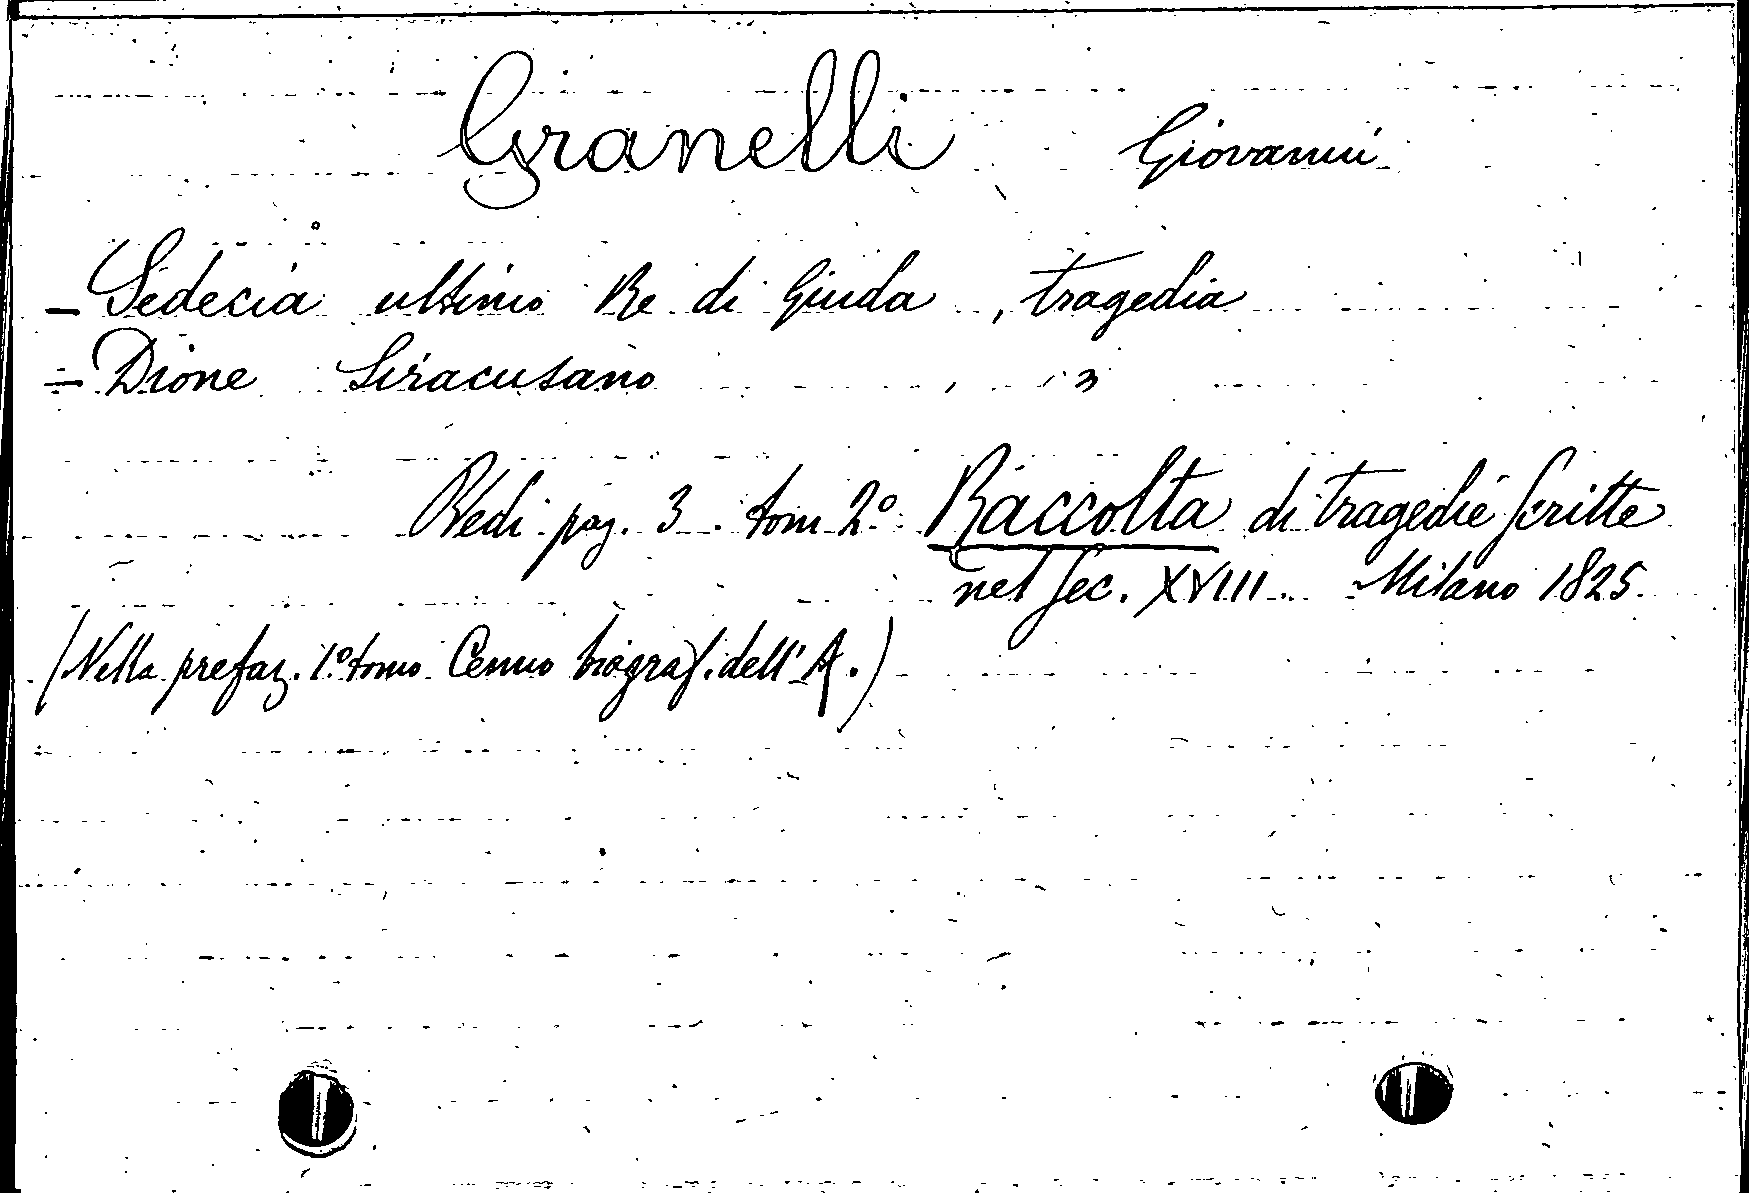 Granelli Giovanni
- Sedecia ultimo Re di Giuda, tragedia
- Dione Siracusano , "
Vedi pag. 3. tom 2º Raccolta di tragedie scritte
nel sec. XVIII. Milano 1825.
(Nella prefaz. 1º tomo Cenno biograf. dell'A.)